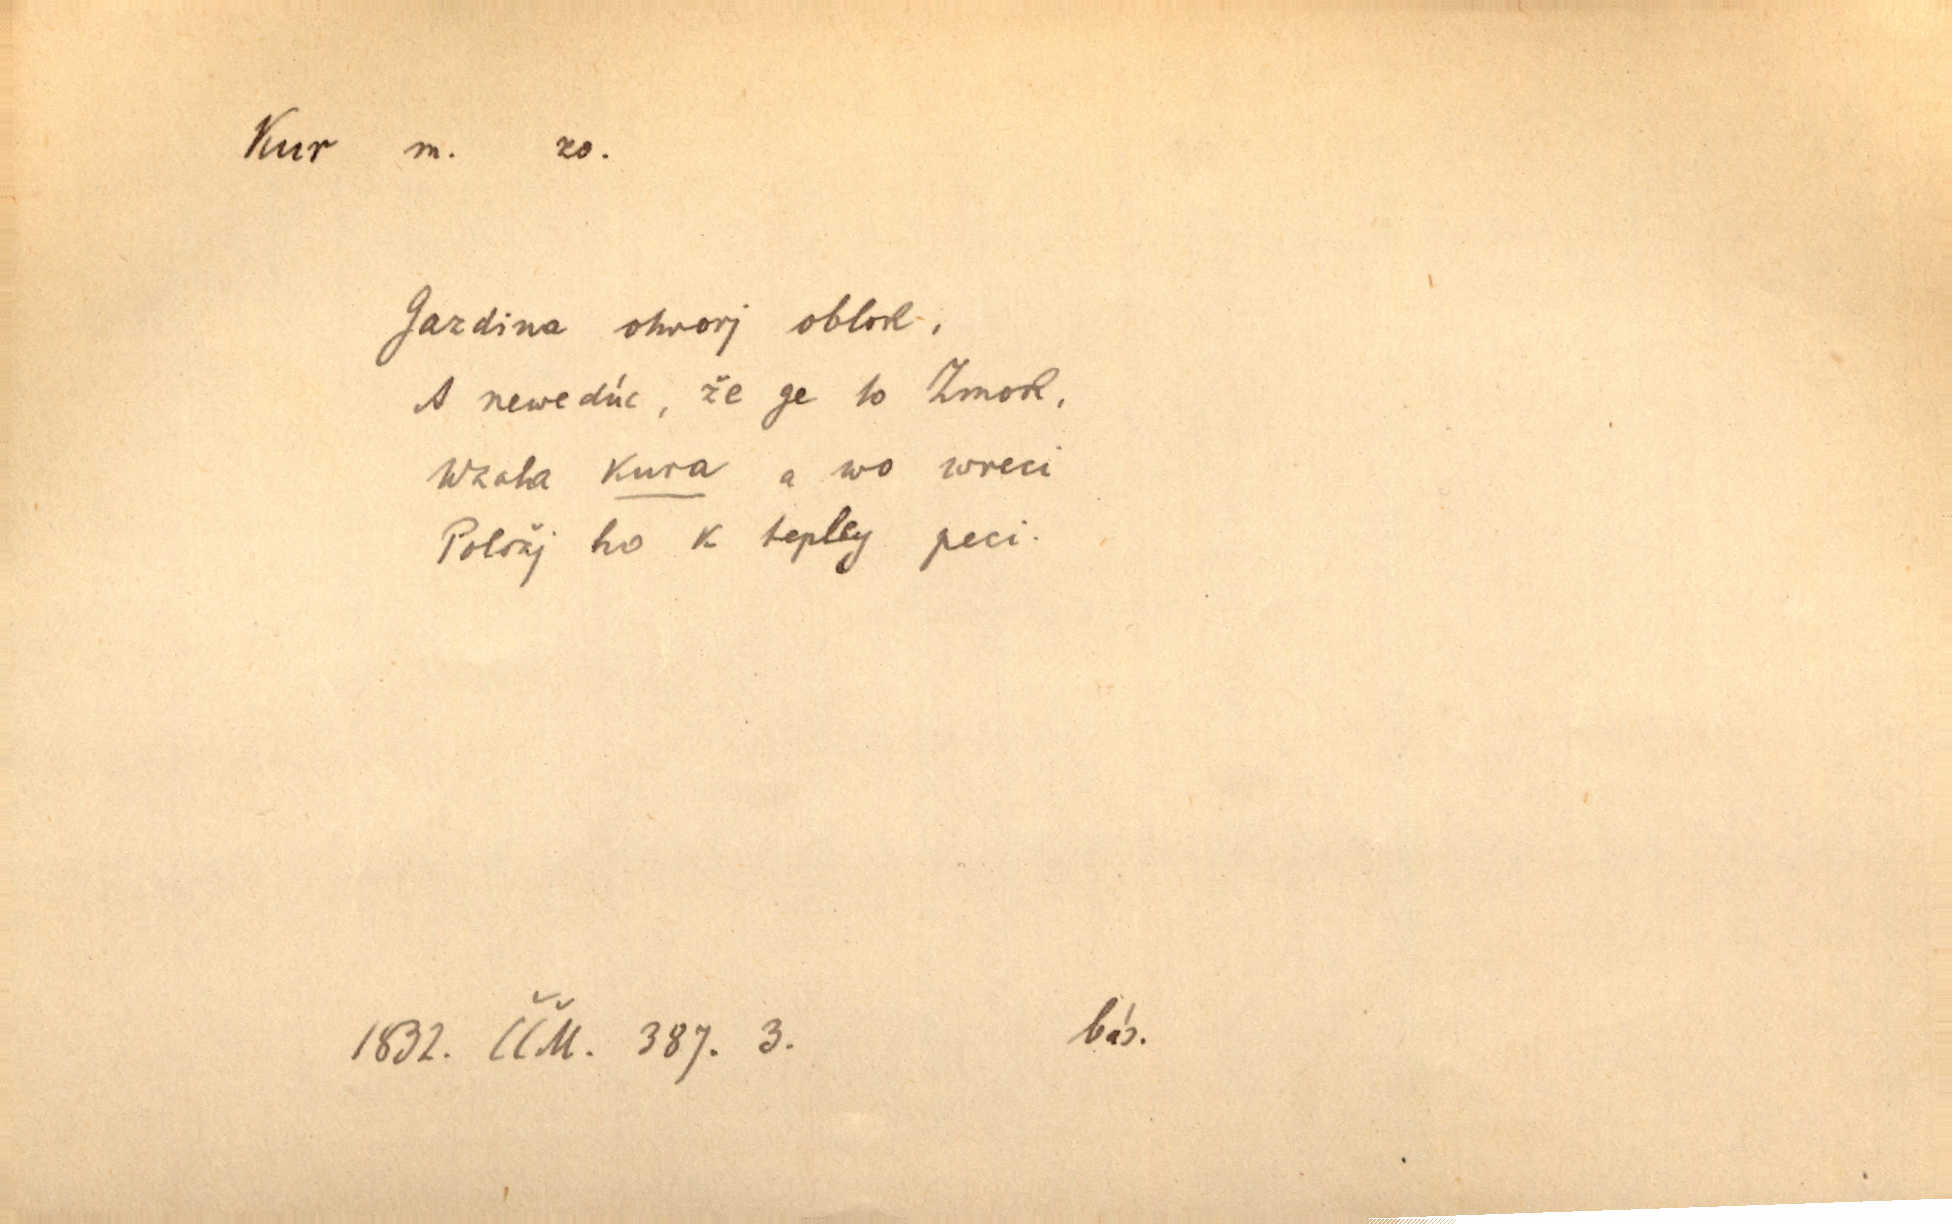 Kur m. zo.
Gazdina otworj oblok,
A newedúc, že ge to Zmok,
Wzala kura a wo wreci
Položj ho k tepley peci.
1832. ČČM. 387. 3. bás.